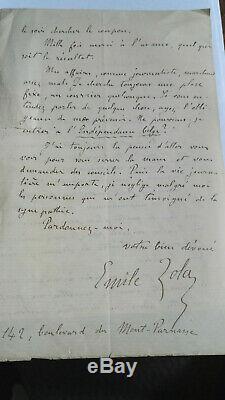 le soir chercher le coupon.
Mille fois merci à l'avance, quel que
soit le résultat.
Mes affaires, comme journaliste, marchent
assez mal. Je cherche toujours une place
fixe, un courrier quelconque. Si vous en-
tendez parler de quelque chose, ayez l'obli-
geance de me prévenir. Ne pourrais-je
entrer à l'Indépendance belge?
J'ai toujours la pensée d'aller vous
voir pour vous serrer la main et vous
demander des conseils. Puis la vie journa-
lière m'emporte, je néglige malgré moi
les personnes qui m'ont témoigné de la
sympathie.
Pardonnez-moi.
Votre bien dévoué
Emile Zola
142, boulevard du Mont-Parnasse